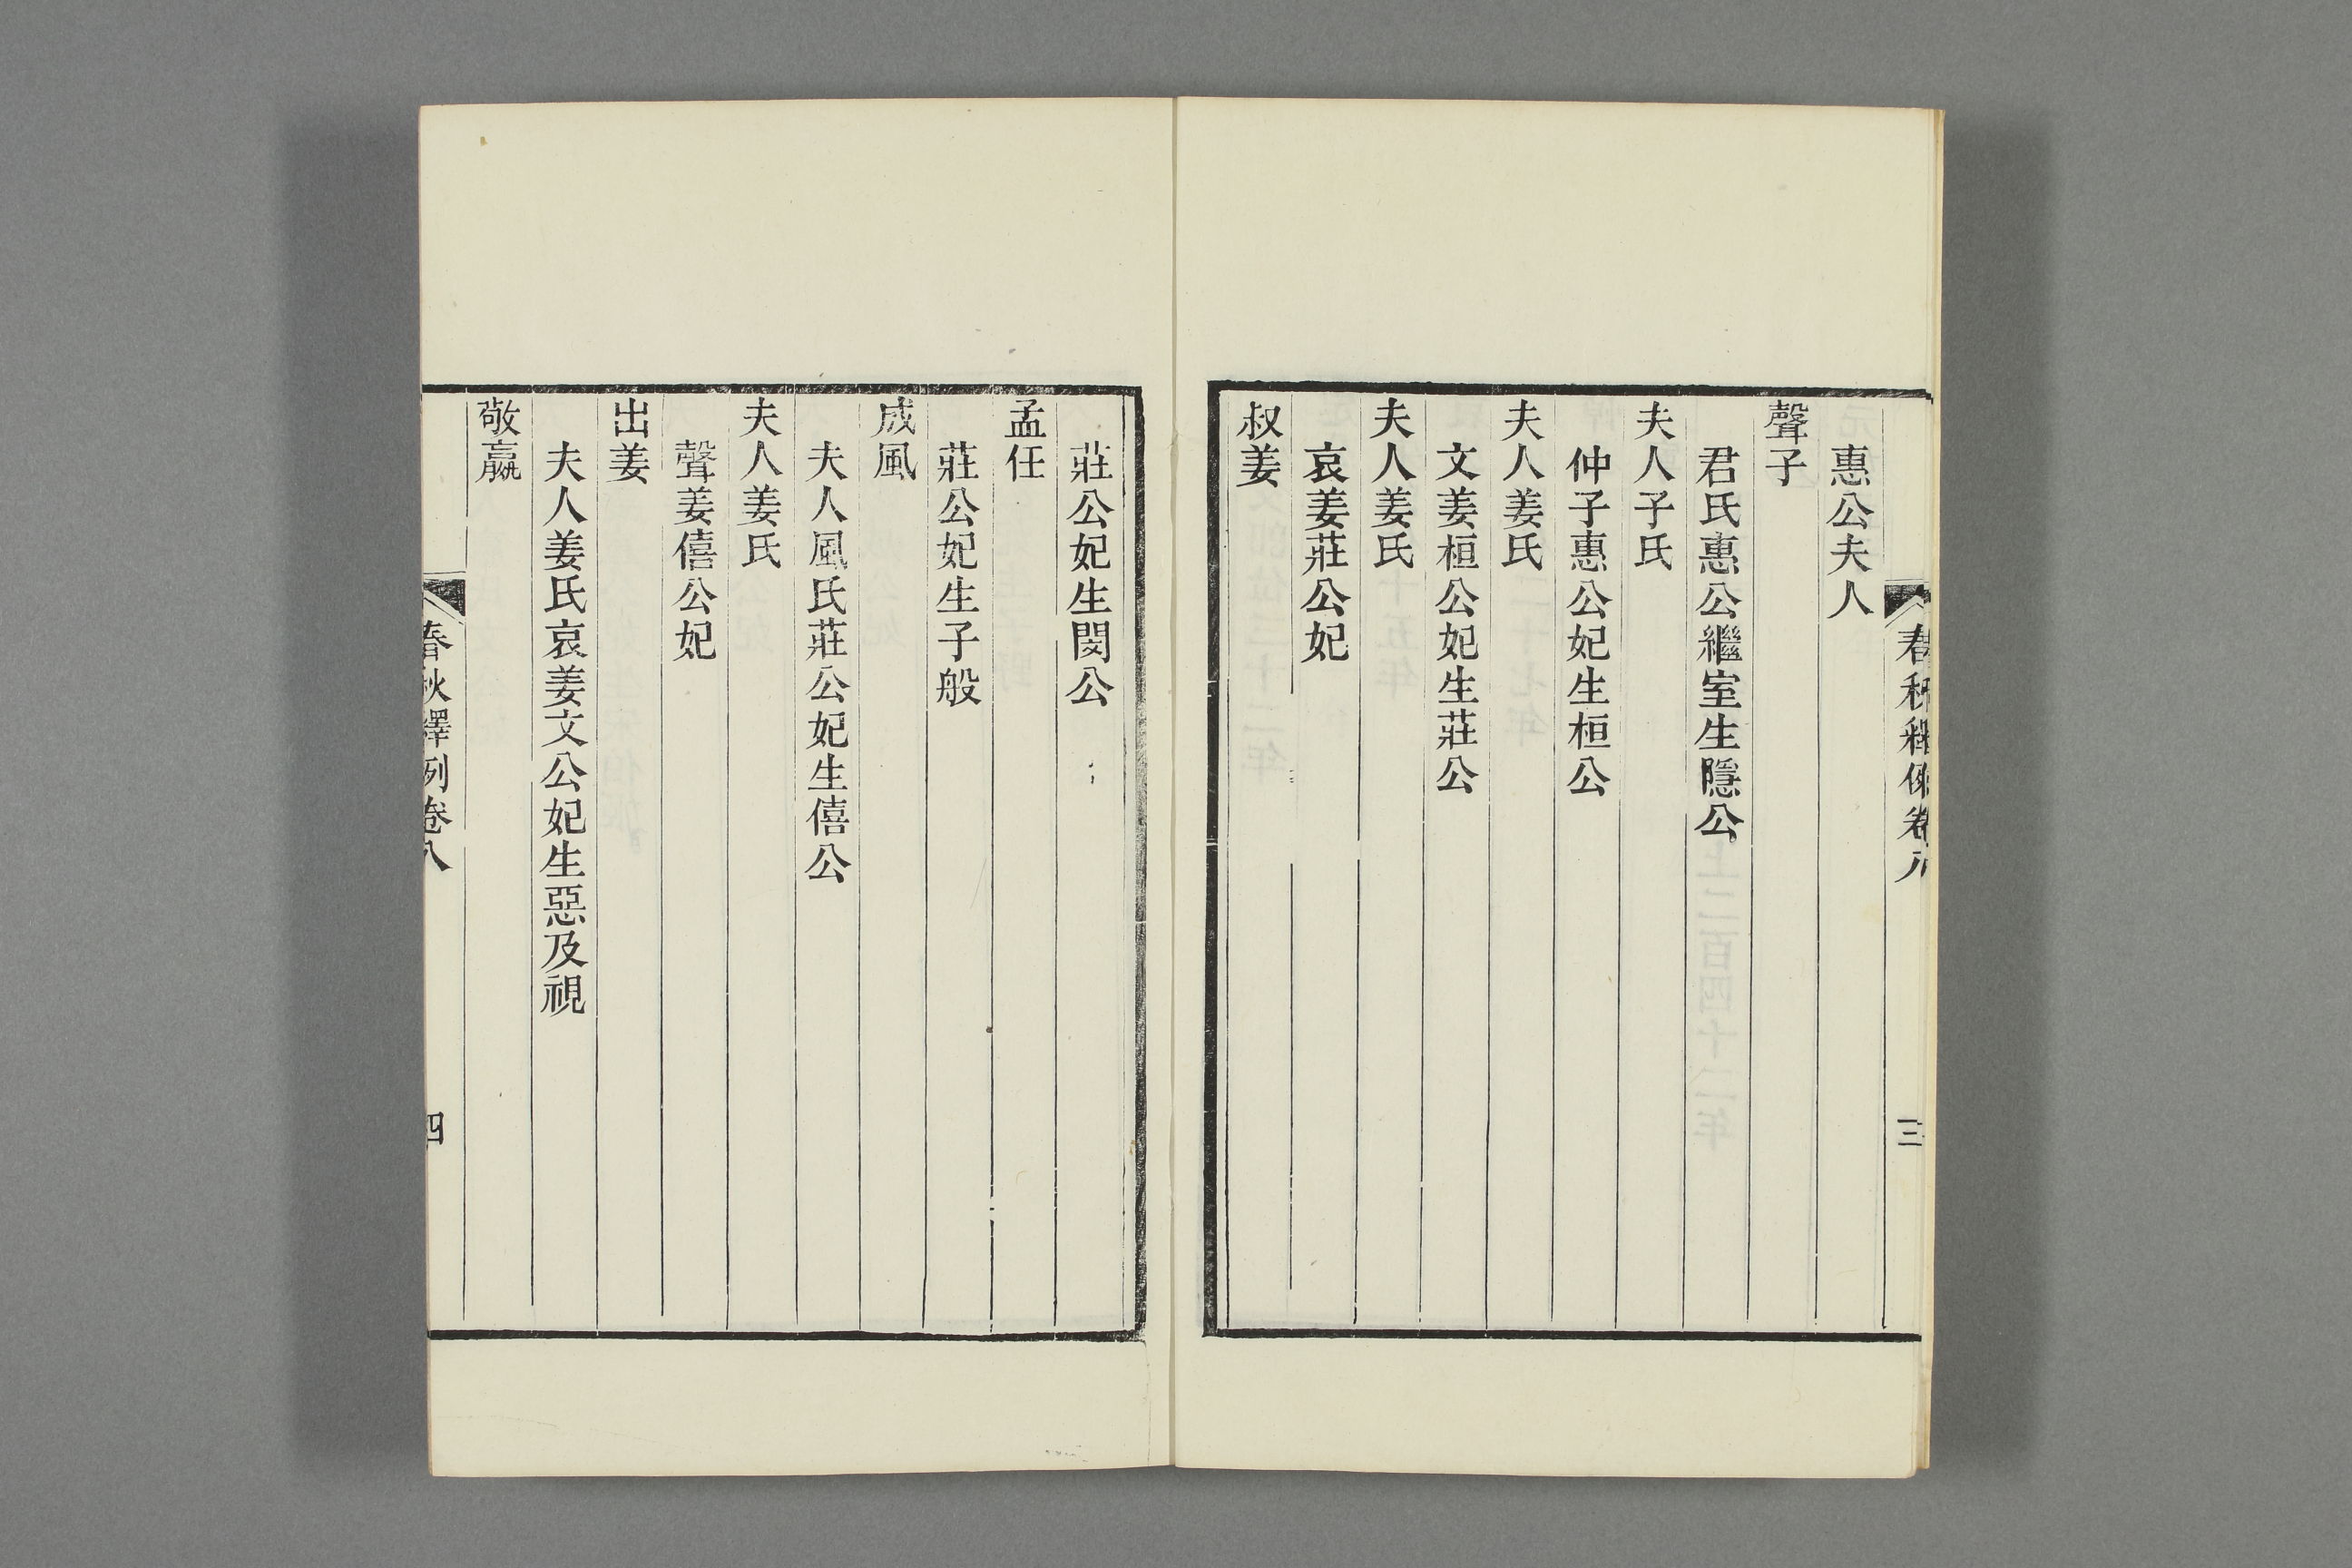 春秋釋例卷八
三
惠公夫人
聲子
君氏惠公繼室生隱公
夫人子氏
仲子惠公妃生桓公
夫人姜氏
文姜桓公妃生莊公
夫人姜氏
哀姜莊公妃
叔姜
莊公妃生閔公
孟任
莊公妃生子般
成風
夫人風氏莊公妃生僖公
夫人姜氏
聲姜僖公妃
出姜
夫人姜氏哀姜文公妃生惡及視
敬嬴
春秋釋例卷八
四